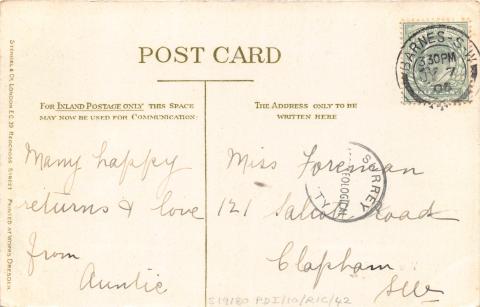 POST CARD
BARNES-S.W.
3.30PM
JY 7
06
FOR INLAND POSTAGE ONLY THIS SPACE
MAY NOW BE USED FOR COMMUNICATION.
THE ADDRESS ONLY TO BE
WRITTEN HERE
Many happy
returns & love
from
Auntie
Miss Foreman
121 Road
Clapham
SW
SURREY
S19180 PDI/10/RIC/42
STENGEL & Co. LONDON E.C. 39 REDCROSS STREET PRINTED AT WORKS DRESDEN.